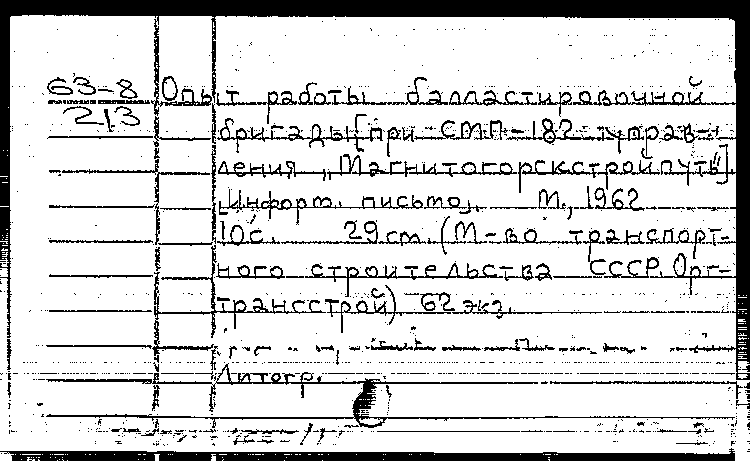 63-8
213
Опыт работы балластировочной
бригады [при СМП-182 управ-
ления „Магнитогорскстройпуть"].
[Информ. письмо]. М., 1962
10с. 29 см. (М-во транспорт-
ного строительства СССР. Орг-
трансстрой) 62 экз.
Литогр.